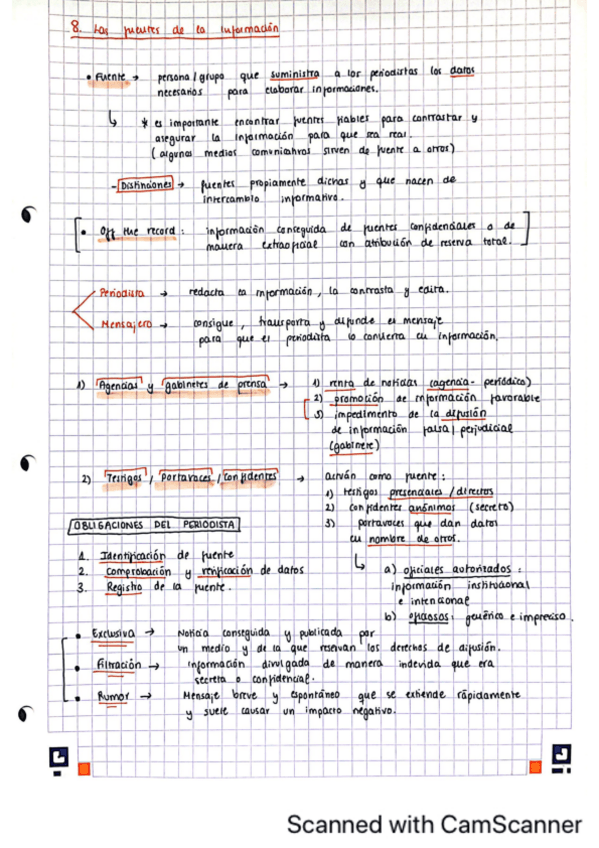 8. Las fuentes de la información
• Fuente → persona/grupo que suministra a los periodistas los datos
necesarios para elaborar informaciones.
↳ * es importante encontrar fuentes fiables para contrastar y
asegurar la información para que sea real.
(algunos medios comunicativos sirven de fuente a otros)
- Distinciones → fuentes propiamente dichas y que nacen de
intercambio informativo.
• Off the record: información conseguida de fuentes confidenciales o de
manera extraoficial con atribución de reserva total.
Periodista → redacta la información, la contrasta y edita.
Mensajero → consigue, transporta y difunde el mensaje
para que el periodista lo convierta en información.
1) Agencias y gabinetes de prensa → 1) renta de noticias (agencia - periódico)
2) promoción de información favorable
3) impedimento de la difusión
de información falsa/perjudicial
(gabinete)
2) Testigos / Portavoces / Confidentes → actúan como fuente:
1) testigos presenciales / directos
2) confidentes anónimos (secreto)
3) portavoces que dan datos
en nombre de otros.
↳ a) oficiales autorizados:
información institucional
e intencional
b) oficiosos: genérica e imprecisa.
OBLIGACIONES DEL PERIODISTA
1. Identificación de fuente
2. Comprobación y verificación de datos
3. Registro de la fuente.
• Exclusiva → Noticia conseguida y publicada por
un medio y de la que reservan los derechos de difusión.
• Filtración → Información divulgada de manera indevida que era
secreta o confidencial.
• Rumor → Mensaje breve y espontáneo que se extiende rápidamente
y suele causar un impacto negativo.
Scanned with CamScanner